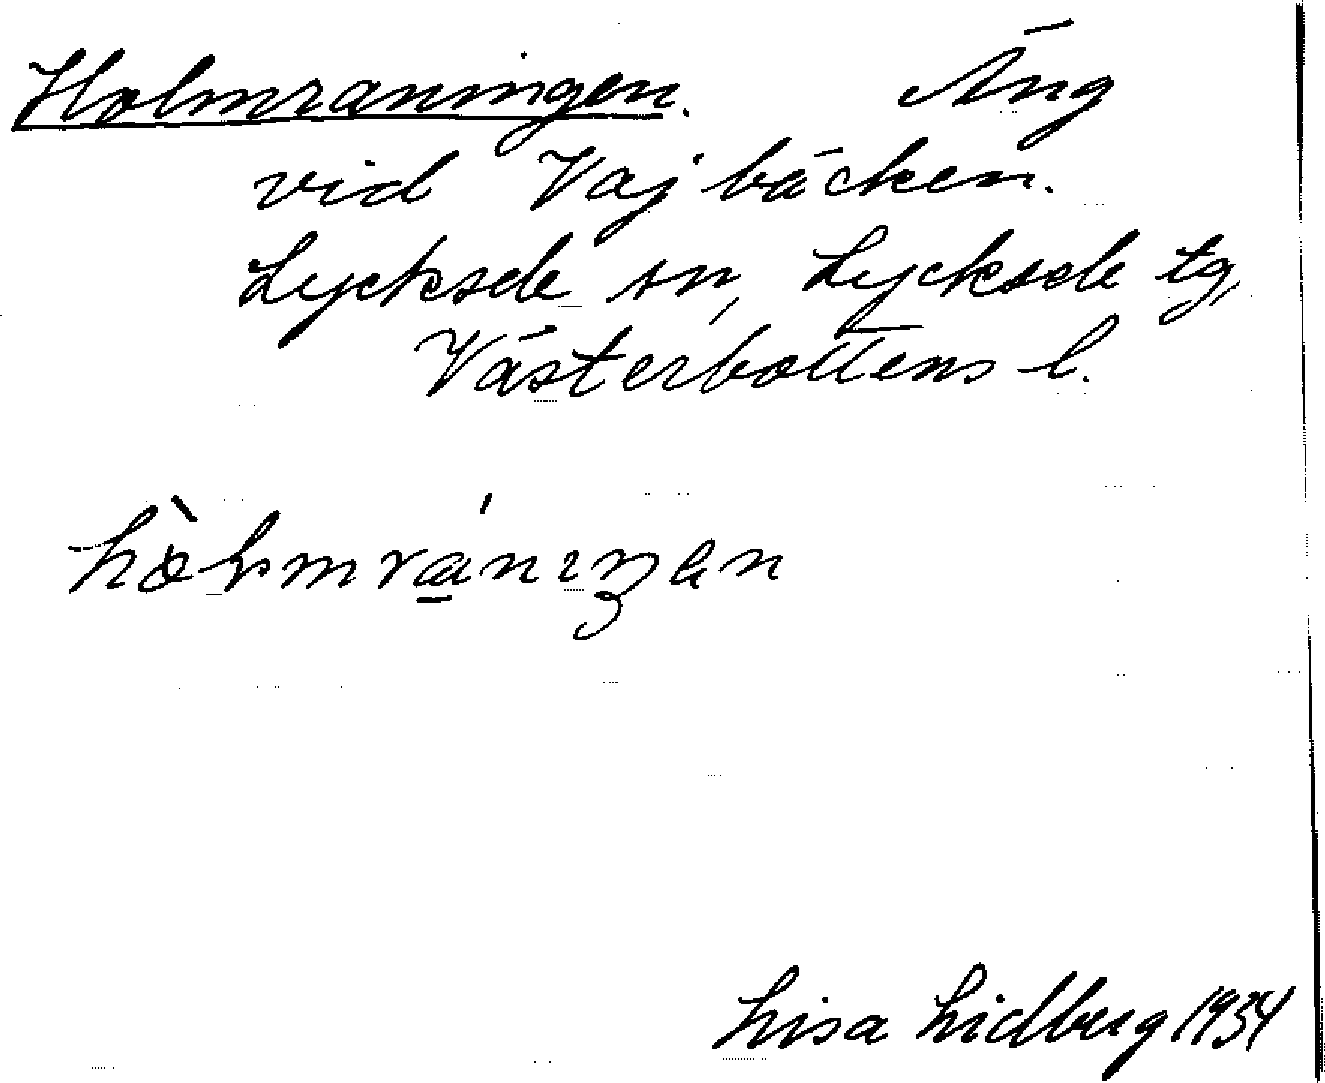 Holmraningen. Äng
vid Vajbäcken.
Lycksele sn, Lycksele tg,
Västerbottens l.
Lisa Lidberg 1934